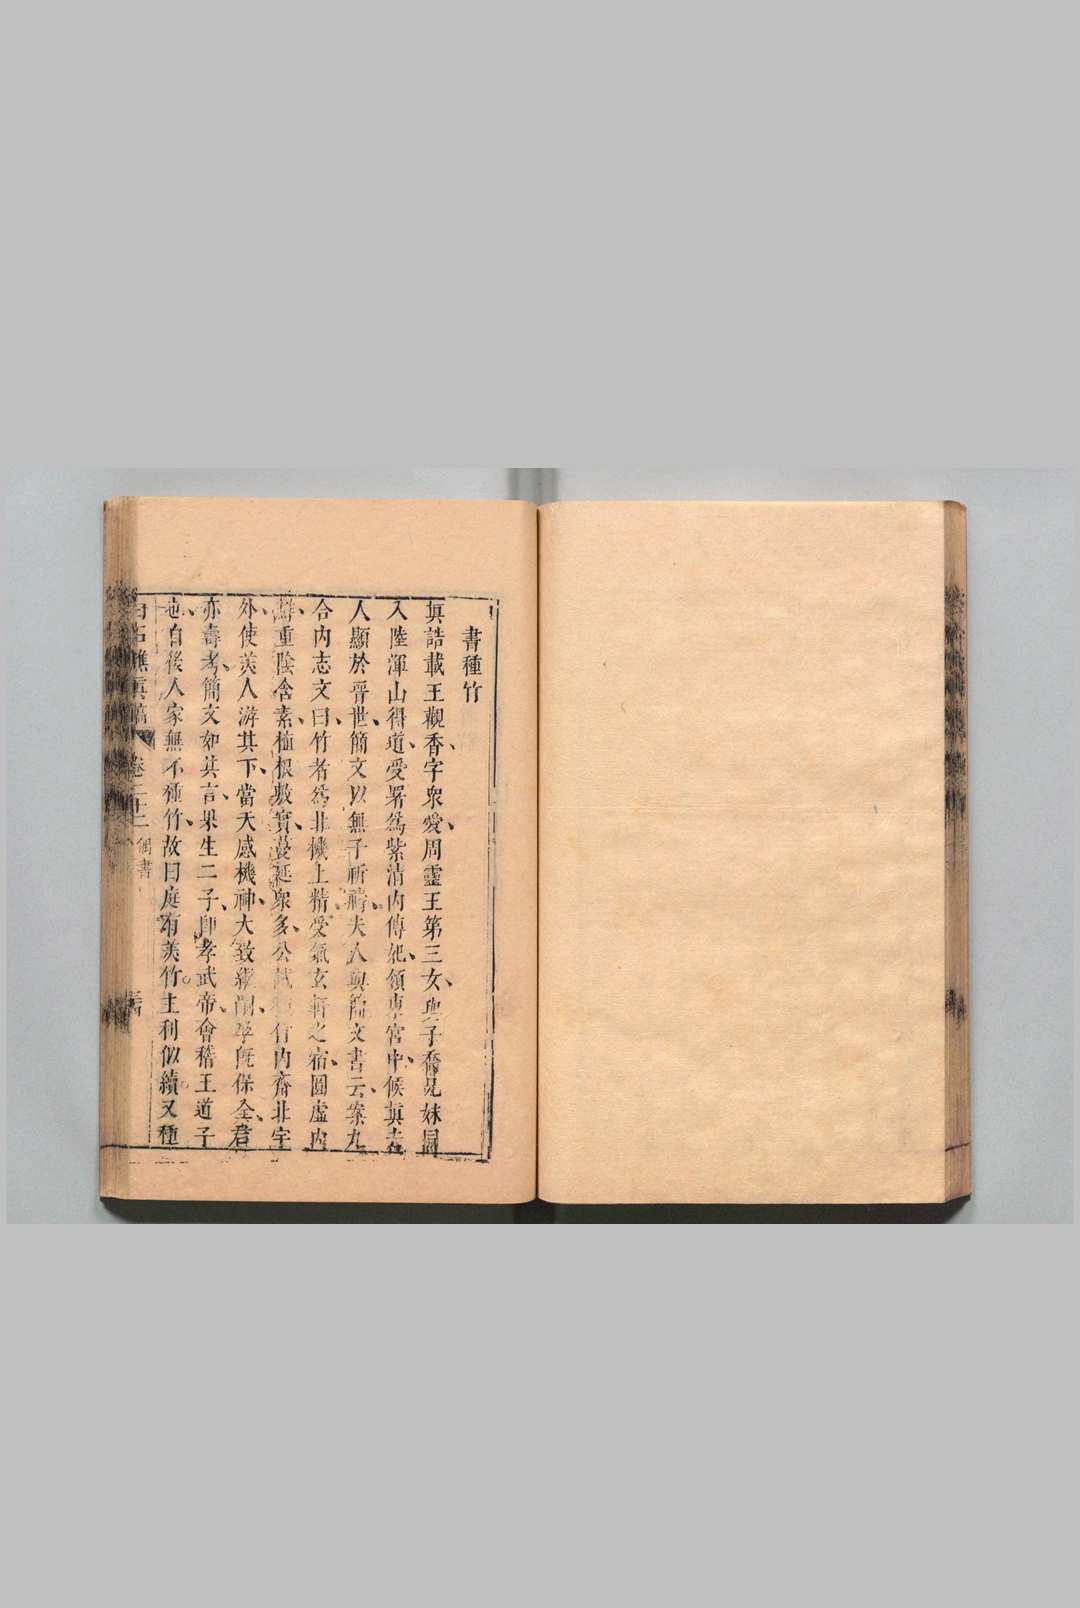 書種竹
眞誥載王觀香字衆愛周靈王第三女與子喬兄妹同
入陸渾山得道受署爲紫清內傳妃領東宮中候眞夫
人顯於晉世簡文以無子祈禱夫人與簡文書云案九
合內志文曰竹者爲北機上精受氣玄軒之宿圓虛內
鮮重陰含素植根敷實蔓延衆多公試種竹內齋北宇
外使美人游其下當天感機神大致繼嗣孕旣保全君
亦壽考簡文如其言果生二子卽孝武帝會稽王道子
也自後人家無不種竹故曰庭有美竹主利似續又種
白石樵眞稿 卷二十二 偶書 三四